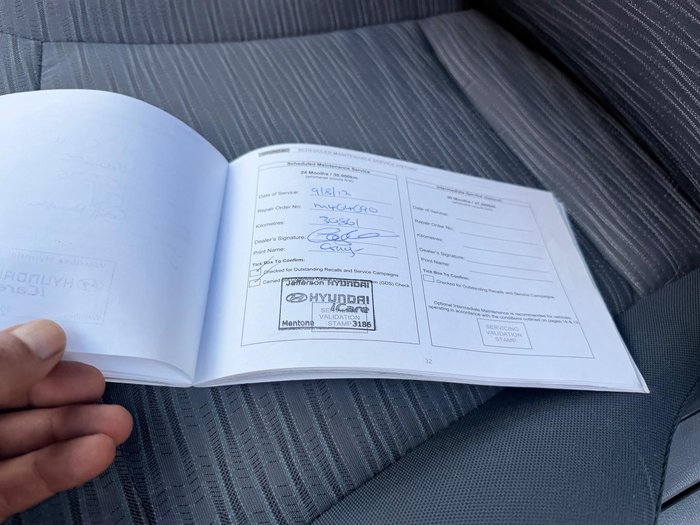 HYUNDAI SCHEDULED MAINTENANCE SERVICE HISTORY
Scheduled Maintenance Service
24 Months / 30,000km
(whichever occurs first)
Date of Service: 9/8/12
Repair Order No:
Kilometres: 30861
Dealer's Signature:
Print Name: Craig
Tick Box To Confirm:
Checked for Outstanding Recalls and Service Campaigns
Carried (GDS) Check
Jefferson HYUNDAI
HYUNDAI
iCare
SERVICING
VALIDATION
Mentone STAMP 3186
Intermediate Service (optional)
(whichever occurs first)
Date of Service:
Repair Order No:
Kilometres:
Dealer's Signature:
Print Name:
Tick Box To Confirm:
Checked for Outstanding Recalls and Service Campaigns
Optional Intermediate Maintenance is recommended for vehicles
operating in accordance with the conditions outlined on pages 14 &
SERVICING
VALIDATION
STAMP
12